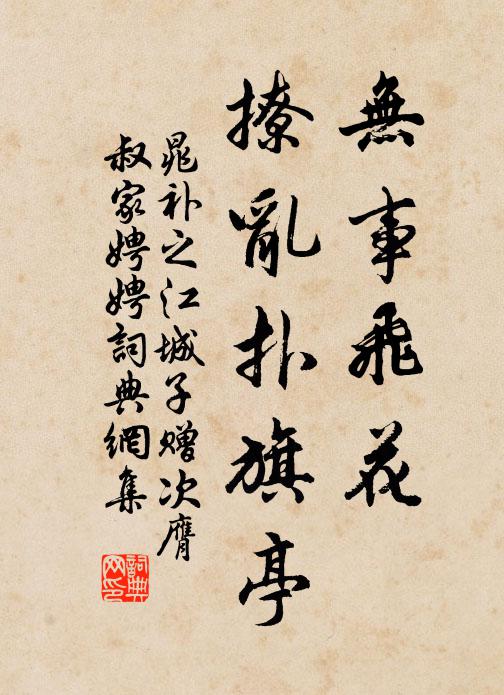 無事飛花
撩亂扑旗亭
晁补之江城子赠次膺
叔家娉娉詞典網集
詞典
网印